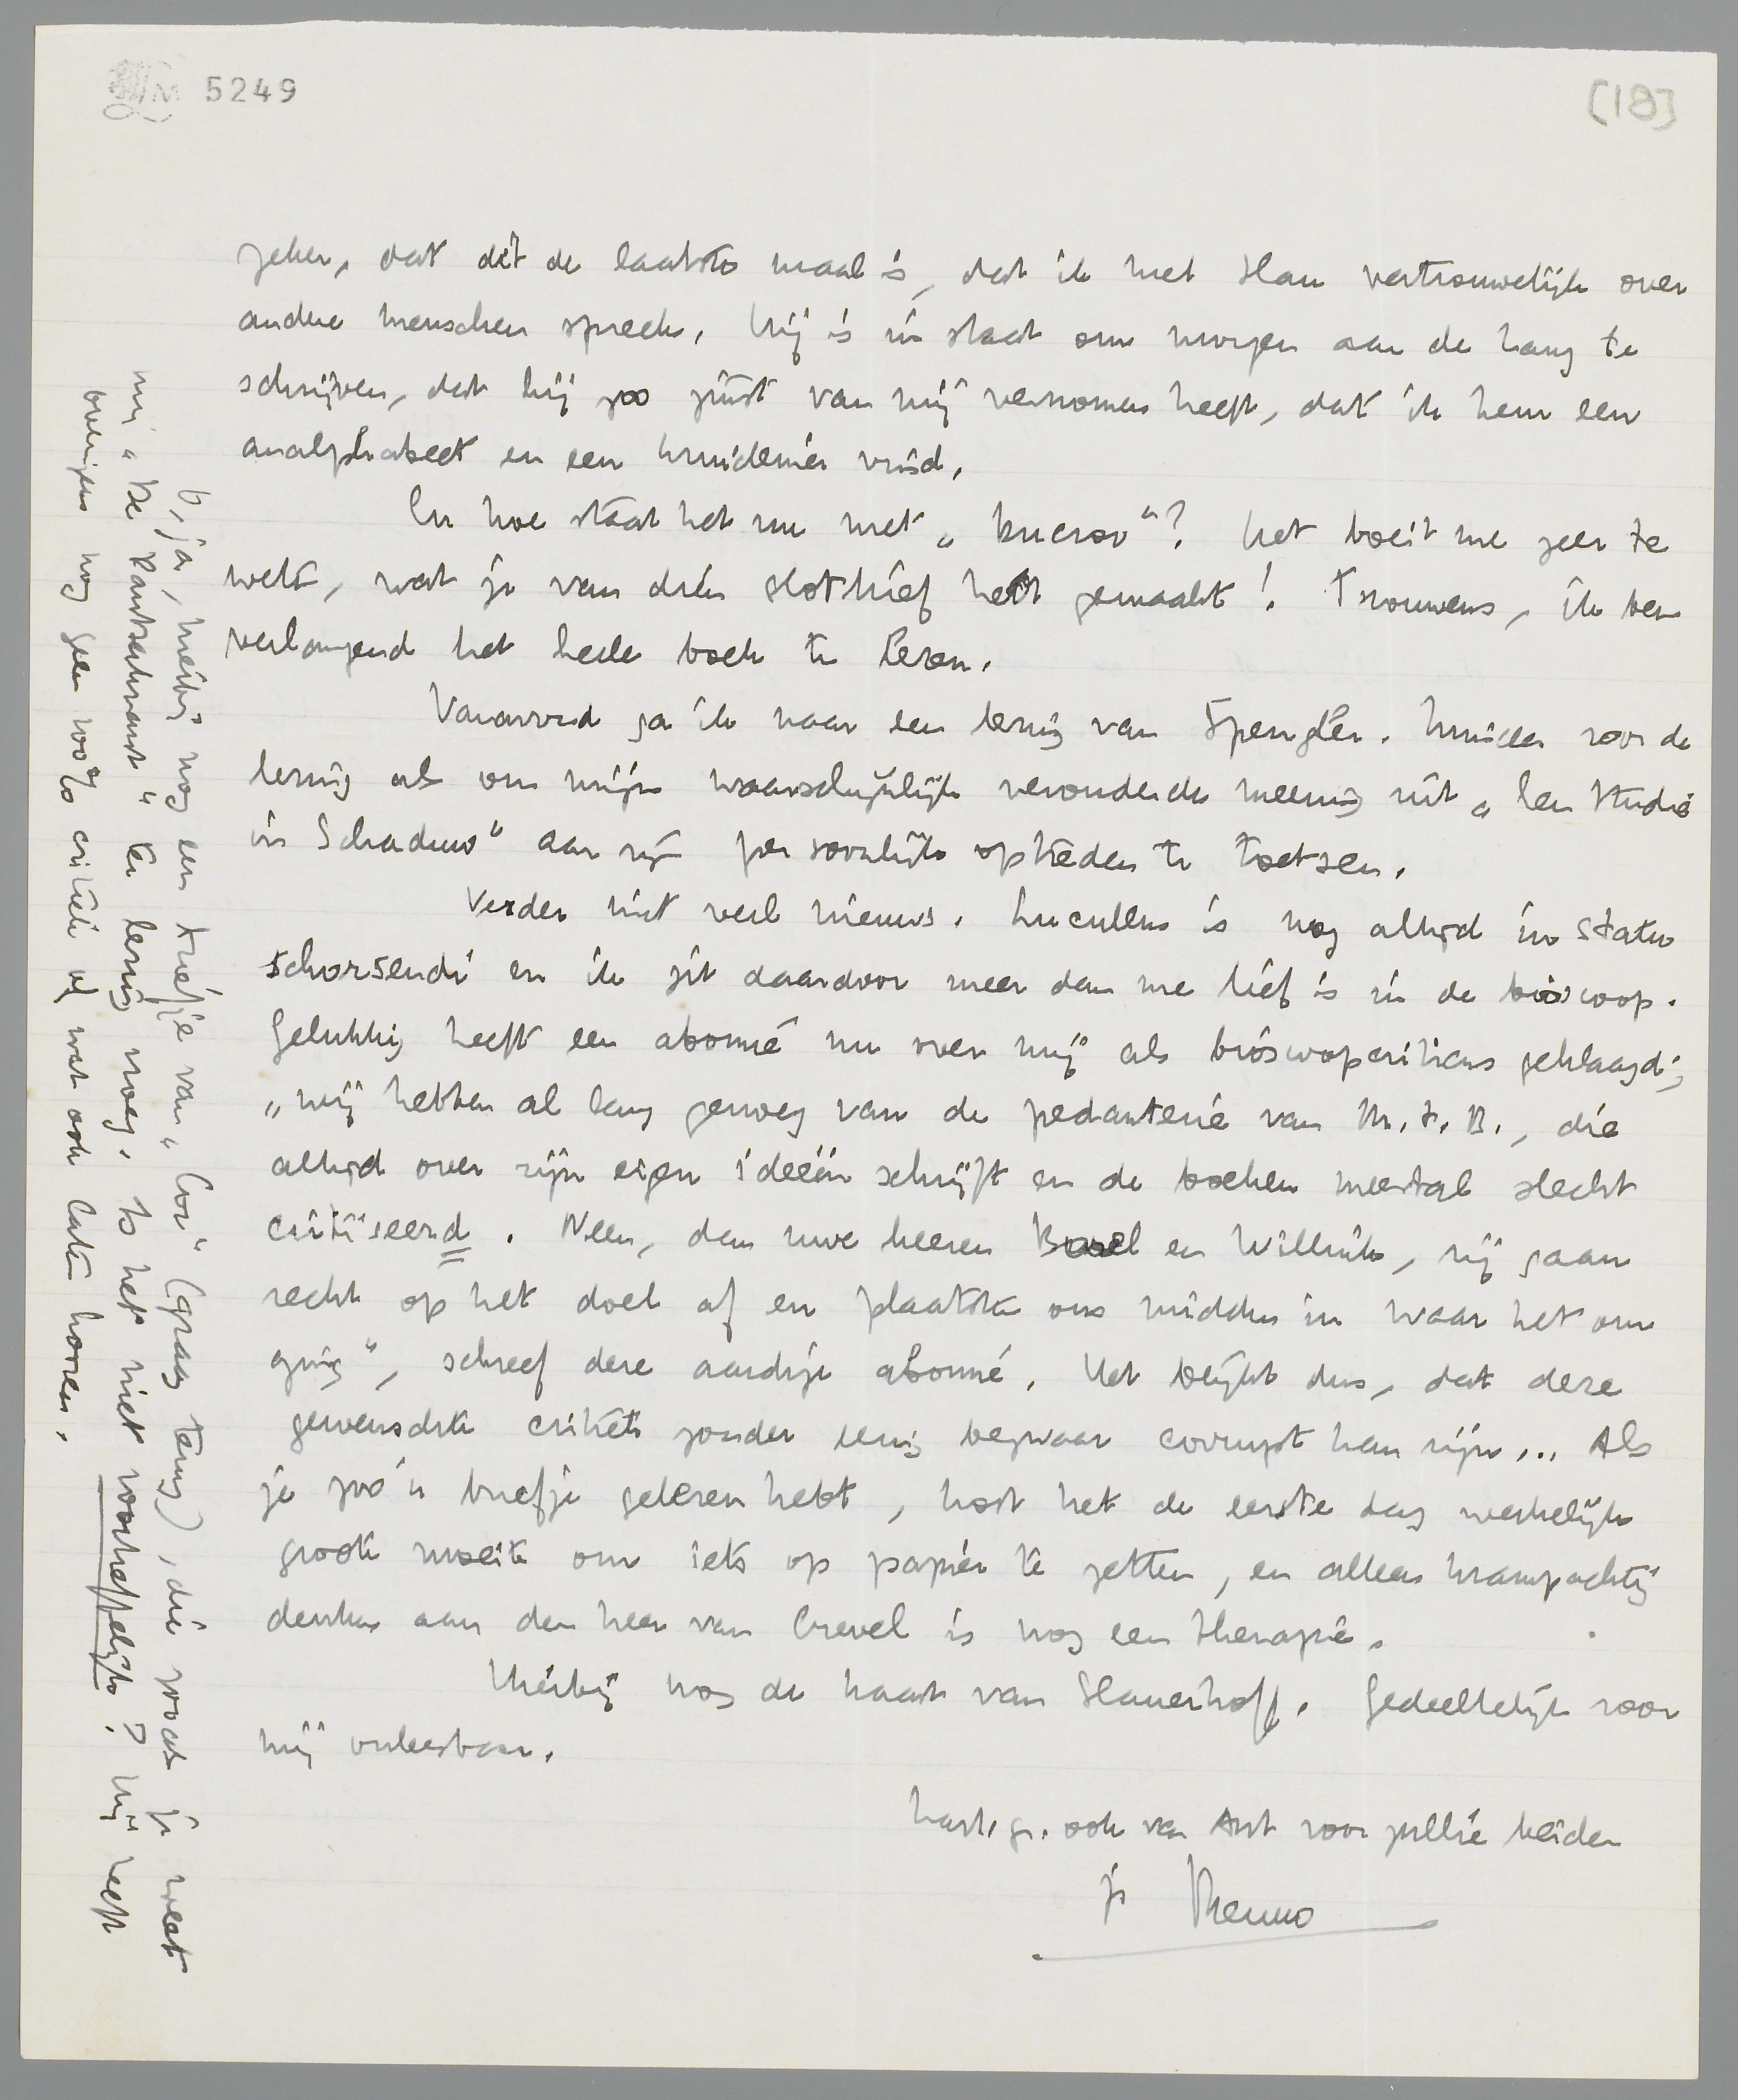 5249
[18]
zeker, dat dit de laatste maal is, dat ik met Slau vertrouwelijk over
andere menschen spreek. Hij is in staat om morgen aan de Haag te
schrijven, dat hij zoo juist van mij vernomen heeft, dat ik hem een
analphabeet en een kruidenier vind.
En hoe staat het nu met „ "? Het boeit me zeer te
weten, wat je van dien slotbrief hebt gemaakt! Trouwens, ik ben
verlangend het heele boek te lezen.
Vanavond ga ik naar een lezing van Spengler. Minder voor de
lezing als om mijn waarschijnlijk verouderde meening uit „Een Studie
in Schaduw" aan zijn persoonlijk optreden te toetsen.
Verder niet veel nieuws. Lucullus is nog altijd in statu
schorsendi en ik zit daardoor meer dan me lief is in de bioscoop.
Gelukkig heeft een abonné nu over mij als bioscoopcriticus geklaagd;
„wij hebben al lang genoeg van de pedanterie van M.t.B., die
altijd over zijn eigen ideeën schrijft en de boeken meestal slecht
critiseerd. Neen, dan uwe heeren Borel en Willink, zij gaan
recht op het doel af en plaatste ons midden in waar het om
ging", schreef deze aardige abonné. Het blijkt dus, dat deze
gewenschte critiek zonder eenig bezwaar corrupt kan zijn... Als
je zoo'n briefje gelezen hebt, kost het de eerste dag werkelijk
groote moeite om iets op papier te zetten, en alleen krampachtig
denken aan den heer van Crevel is nog een therapie.
Hierbij nog de kaart van Slauerhoff. Gedeeltelijk voor
mij onleesbaar.
hart. gr. ook van Ant voor jullie beiden
je Menno
O, ja, hierbij nog een briefje van „Cor" (graag terug), die zooals je weet
mij „De Pantserkrant" ter lezing vroeg. Is het niet voortreffelijk? Hij heeft
overigens nog geen woord critiek of wat ook laten hooren.